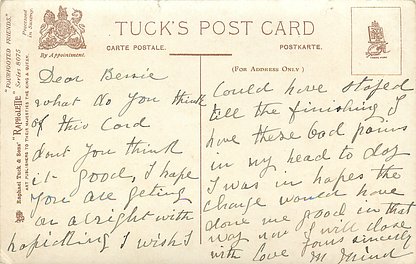 TUCK'S POST CARD
By Appointment.
CARTE POSTALE.
POSTKARTE.
(FOR ADDRESS ONLY)
"FOURFOOTED FRIENDS."
Raphael Tuck & Sons' "RAPHOLETTE" Series 8075
ART PUBLISHERS TO THEIR MAJESTIES THE KING & QUEEN.
Dear Bessie
what do you think
of this Card
dont you think
it good, I hope
you are geting
on alright with
I wish I
Could have stoped
till the finishing I
have these bad pains
in my head to day
I was in hopes the
change would have
done me good in that
way now I will close
with love yours sincerly